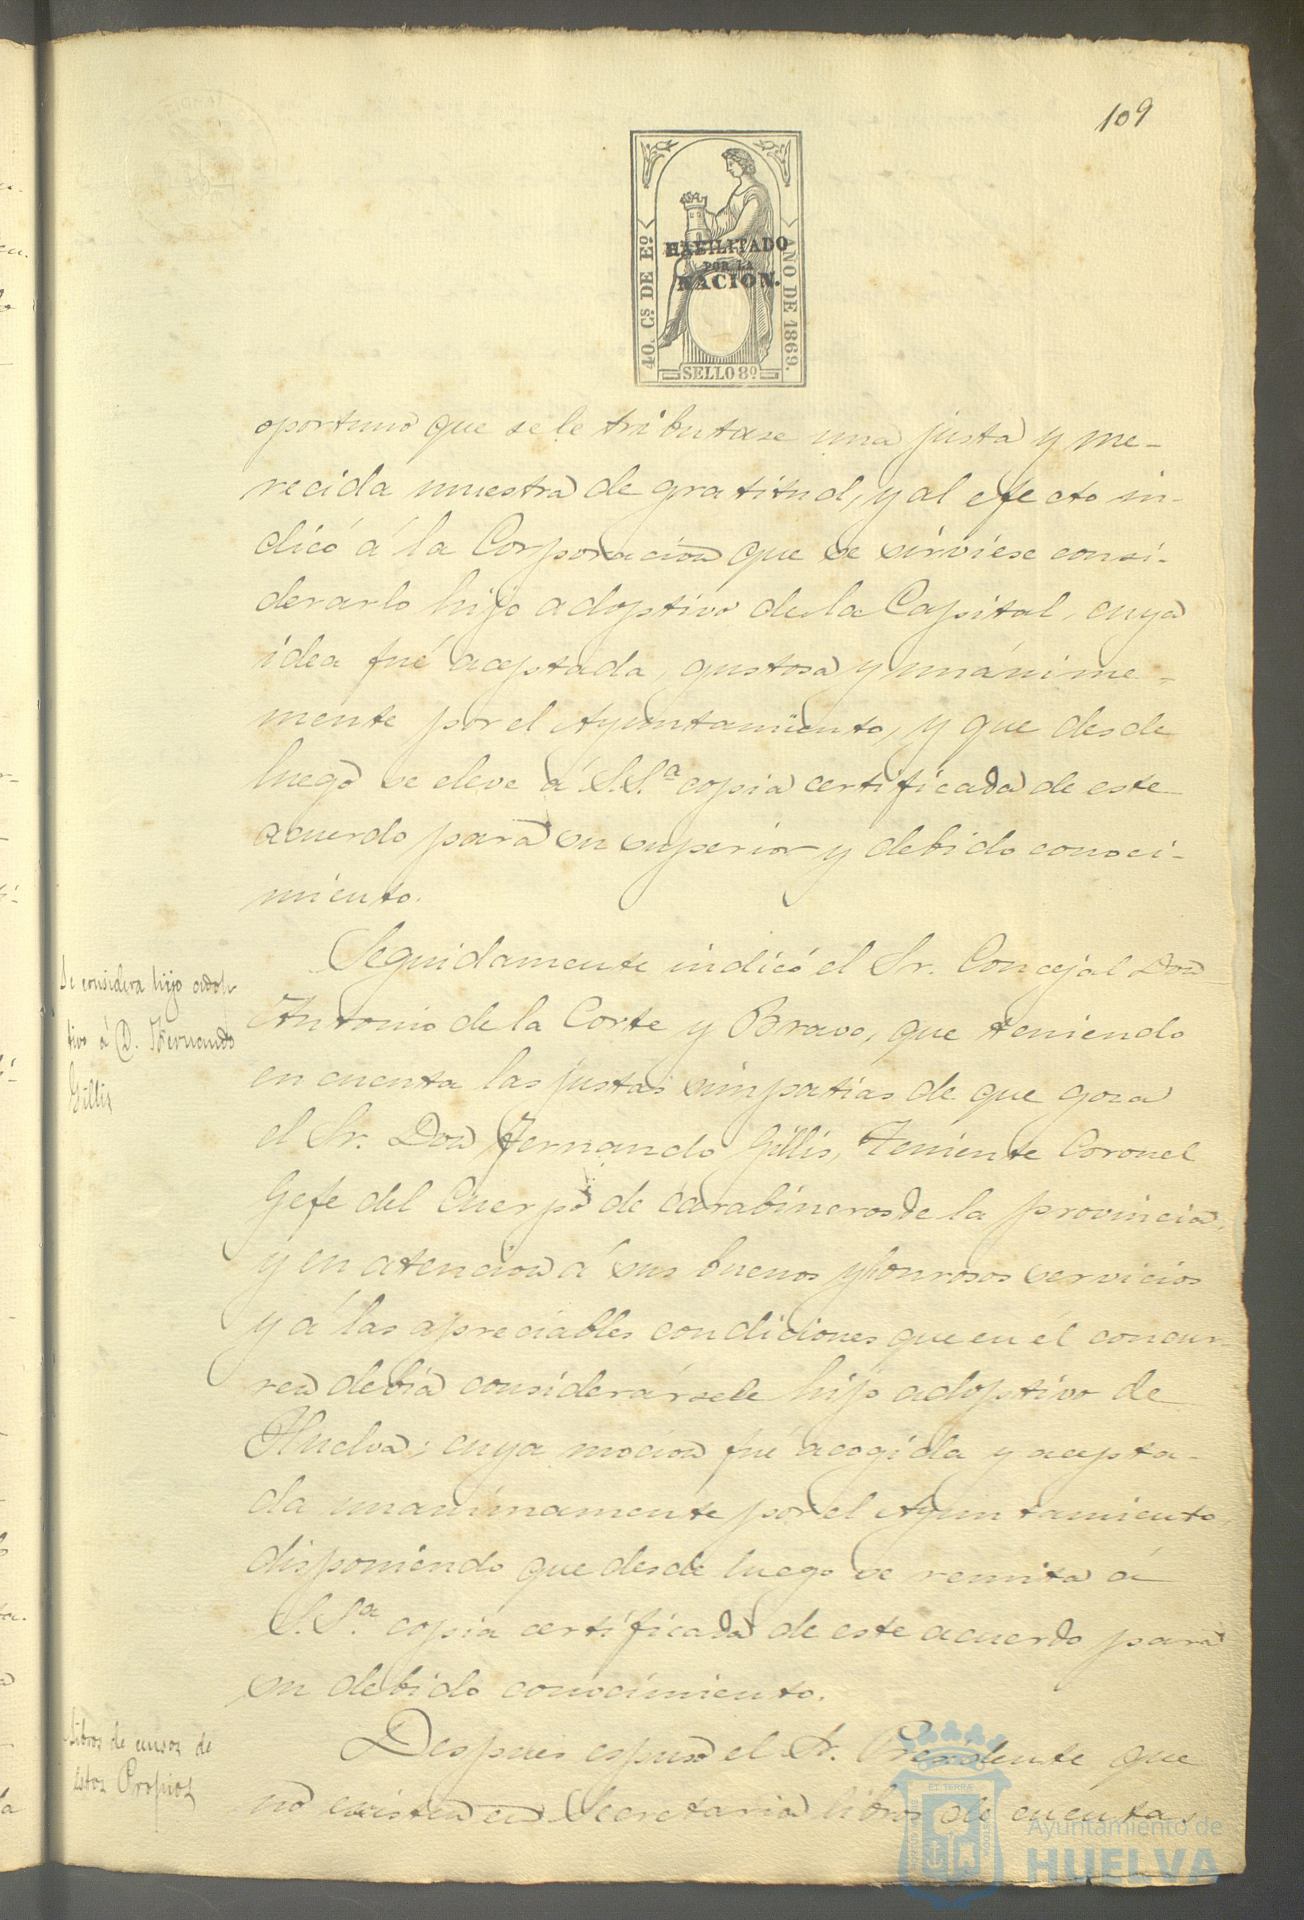 109
HABILITADO
POR LA
NACION.
40. Cs. DE Eº.
AÑO DE 1869.
SELLO 8º
oportuno que se le tributase una justa y me-
recida muestra de gratitud, y al efecto in-
dicó á la Corporacion que se sirviese consi-
derarlo hijo adoptivo de la Capital, cuya
idea fué aceptada, gustosa y unánime-
mente por el Ayuntamiento, y que desde
luego se eleve á S.S.ª copia certificada de este
acuerdo para su superior y debido conoci-
miento.
Se considera hijo adop-
tivo á D. Fernando
Gillis
Seguidamente indicó el Sr. Concejal Don
Antonio de la Corte y Bravo, que teniendo
en cuenta las justas simpatias de que goza
el Sr. Don Fernando Gillis, Teniente Coronel
Gefe del Cuerpo de carabineros de la provincia,
y en atencion á sus buenos y honrosos servicios
y á las apreciables condiciones que en él concur-
ren debia considerársele hijo adoptivo de
Huelva; cuya mocion fué acogida y acepta-
da unanimamente por el Ayuntamiento
disponiendo que desde luego se remita á
S.S.ª copia certificada de este acuerdo para
su debido conocimiento.
Libros de de
estos Propios
Despues espuso el Sr. Presidente que
no existen en Secretaria libros de cuentas
ET TERRÆ
Ayuntamiento de
HUELVA